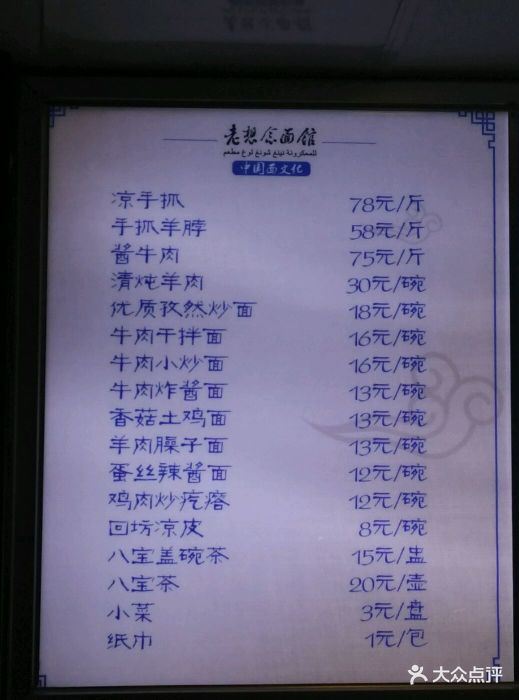 老想念面馆
中国面文化
凉手抓 78元/斤
手抓羊脖 58元/斤
酱牛肉 75元/斤
清炖羊肉 30元/碗
优质孜然炒面 18元/碗
牛肉干拌面 16元/碗
牛肉小炒面 16元/碗
牛肉炸酱面 13元/碗
香菇土鸡面 13元/碗
羊肉臊子面 13元/碗
蛋丝辣酱面 12元/碗
鸡肉炒疙瘩 12元/碗
回坊凉皮 8元/碗
八宝盖碗茶 15元/盅
八宝茶 20元/壶
小菜 3元/盘
纸巾 1元/包
大众点评